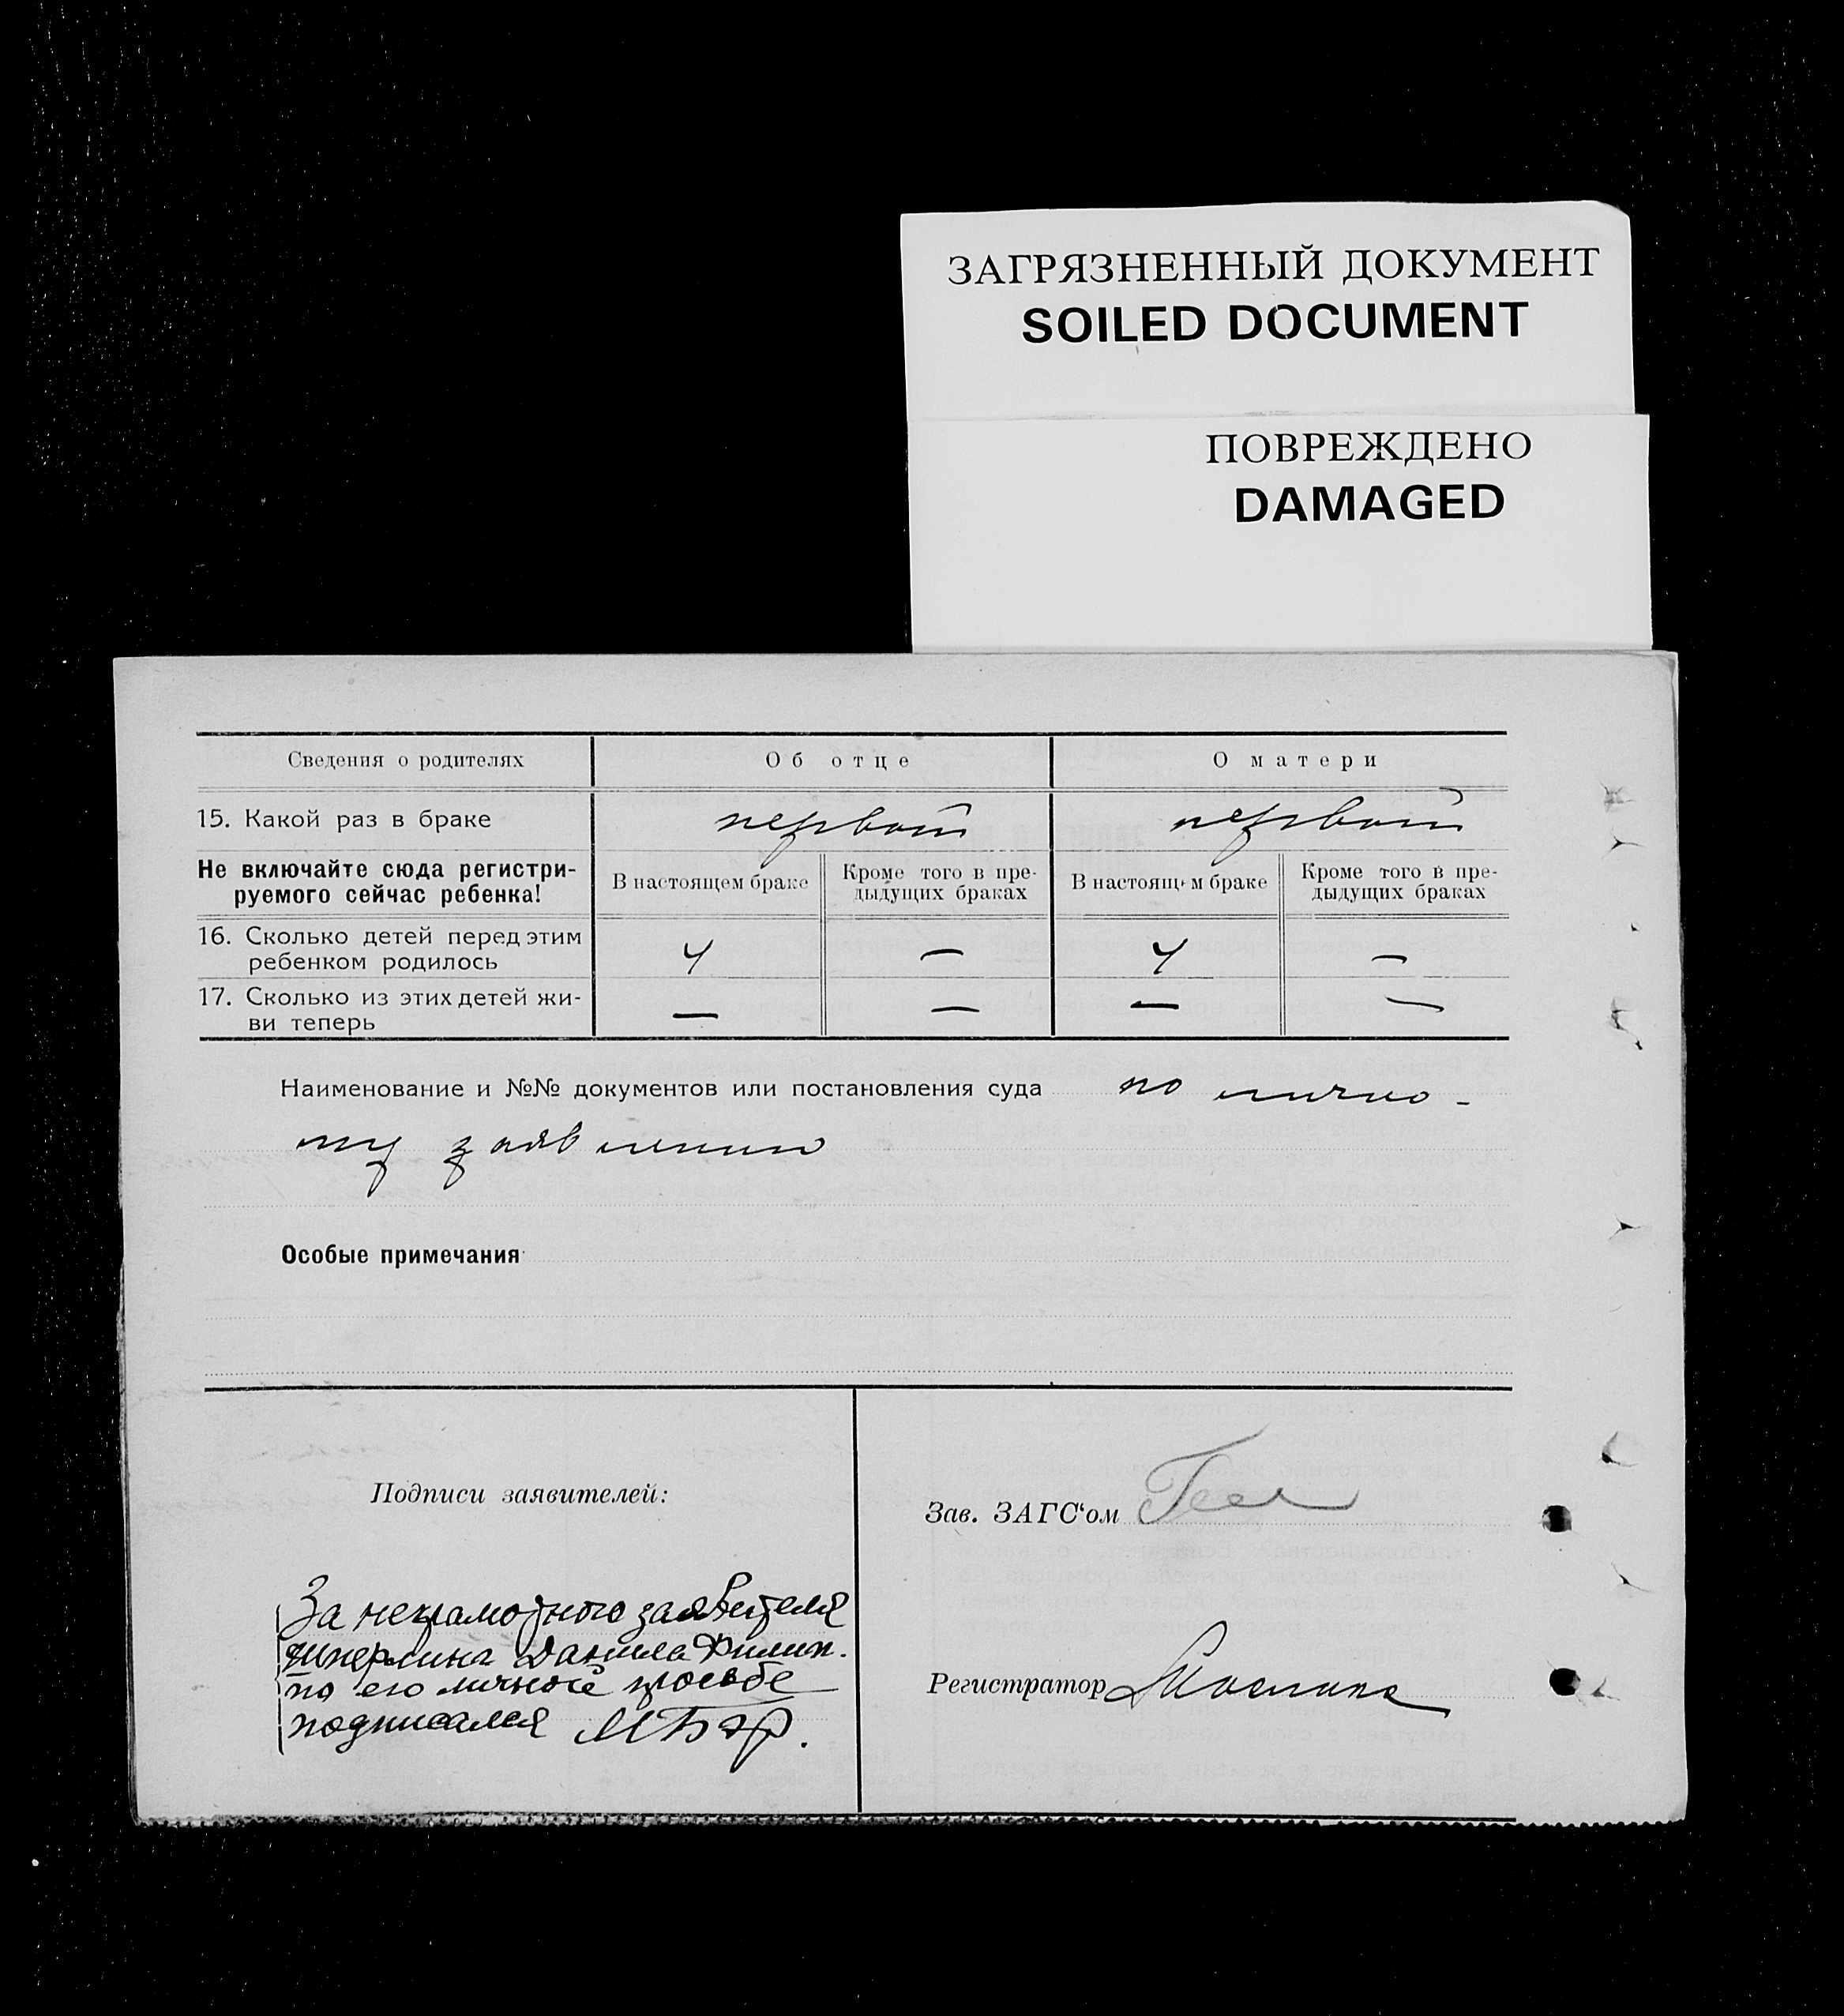 ЗАГРЯЗНЕННЫЙ ДОКУМЕНТ
SOILED DOCUMENT
ПОВРЕЖДЕНО
DAMAGED
Сведения о родителях Об отце О матери
15. Какой раз в браке первый первый
Не включайте сюда регистри-
руемого сейчас ребенка!
В настоящем браке
Кроме того в пре-
дыдущих браках
В настоящем браке
Кроме того в пре-
дыдущих браках
16. Сколько детей перед этим
ребенком родилось
4 — 4 —
17. Сколько из этих детей жи-
ви теперь
— — — —
Наименование и №№ документов или постановления суда по лично-
му заявлению
Особые примечания
Подписи заявителей:
За неграмотного заявителя
Данила Филип.
по его личной просьбе
подписался МБэр.
Зав. ЗАГС'ом
Регистратор